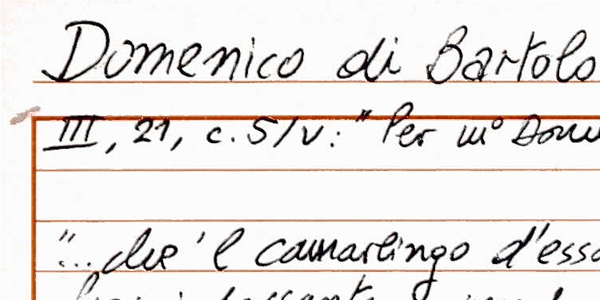 Domenico di Bartolo
III, 21, c. 51v: "Per m° Dome
"...che 'l camarlingo d'esso